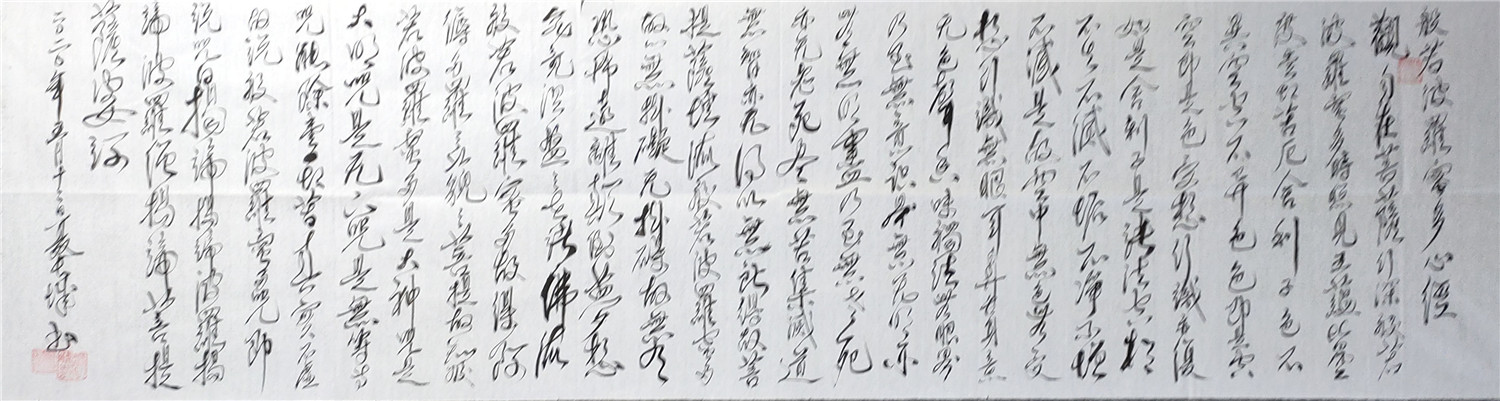 般若波羅蜜多心經
觀自在菩薩行深般若
波羅蜜多時照見五蘊皆空
度一切苦厄舍利子色不
異空空不異色色即是空
空即是色受想行識亦復
如是舍利子是諸法空相
不生不滅不垢不淨不增
不減是故空中無色無受
想行識無眼耳鼻舌身意
无色聲香味觸法無眼界
乃至無意識界無无明亦
無無明盡乃至無老死
亦无老死盡無苦集滅道
無智亦无得以無所得故菩
提薩埵依般若波羅蜜多
故心無掛礙无掛礙故無有
恐怖遠離顛倒夢想
究竟涅槃三世諸佛依
般若波羅蜜多故得阿
耨多羅三藐三菩提故知般
若波羅蜜多是大神咒是
大明咒是无上咒是無等等
咒能除一切苦真實不虛
故說般若波羅蜜多咒即
說咒曰揭諦揭諦波羅揭
諦波羅僧揭諦菩提
薩婆訶
二〇二〇年五月十二日